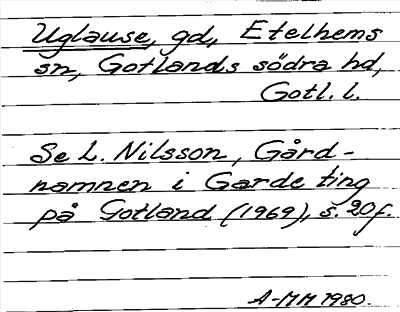 Uglause, gd, Etelhems
sn, Gotlands södra hd,
Gotl. l.
Se L. Nilsson, Gård-
namnen i Garde ting
på Gotland (1969), s. 20f.
A-MM 1980.